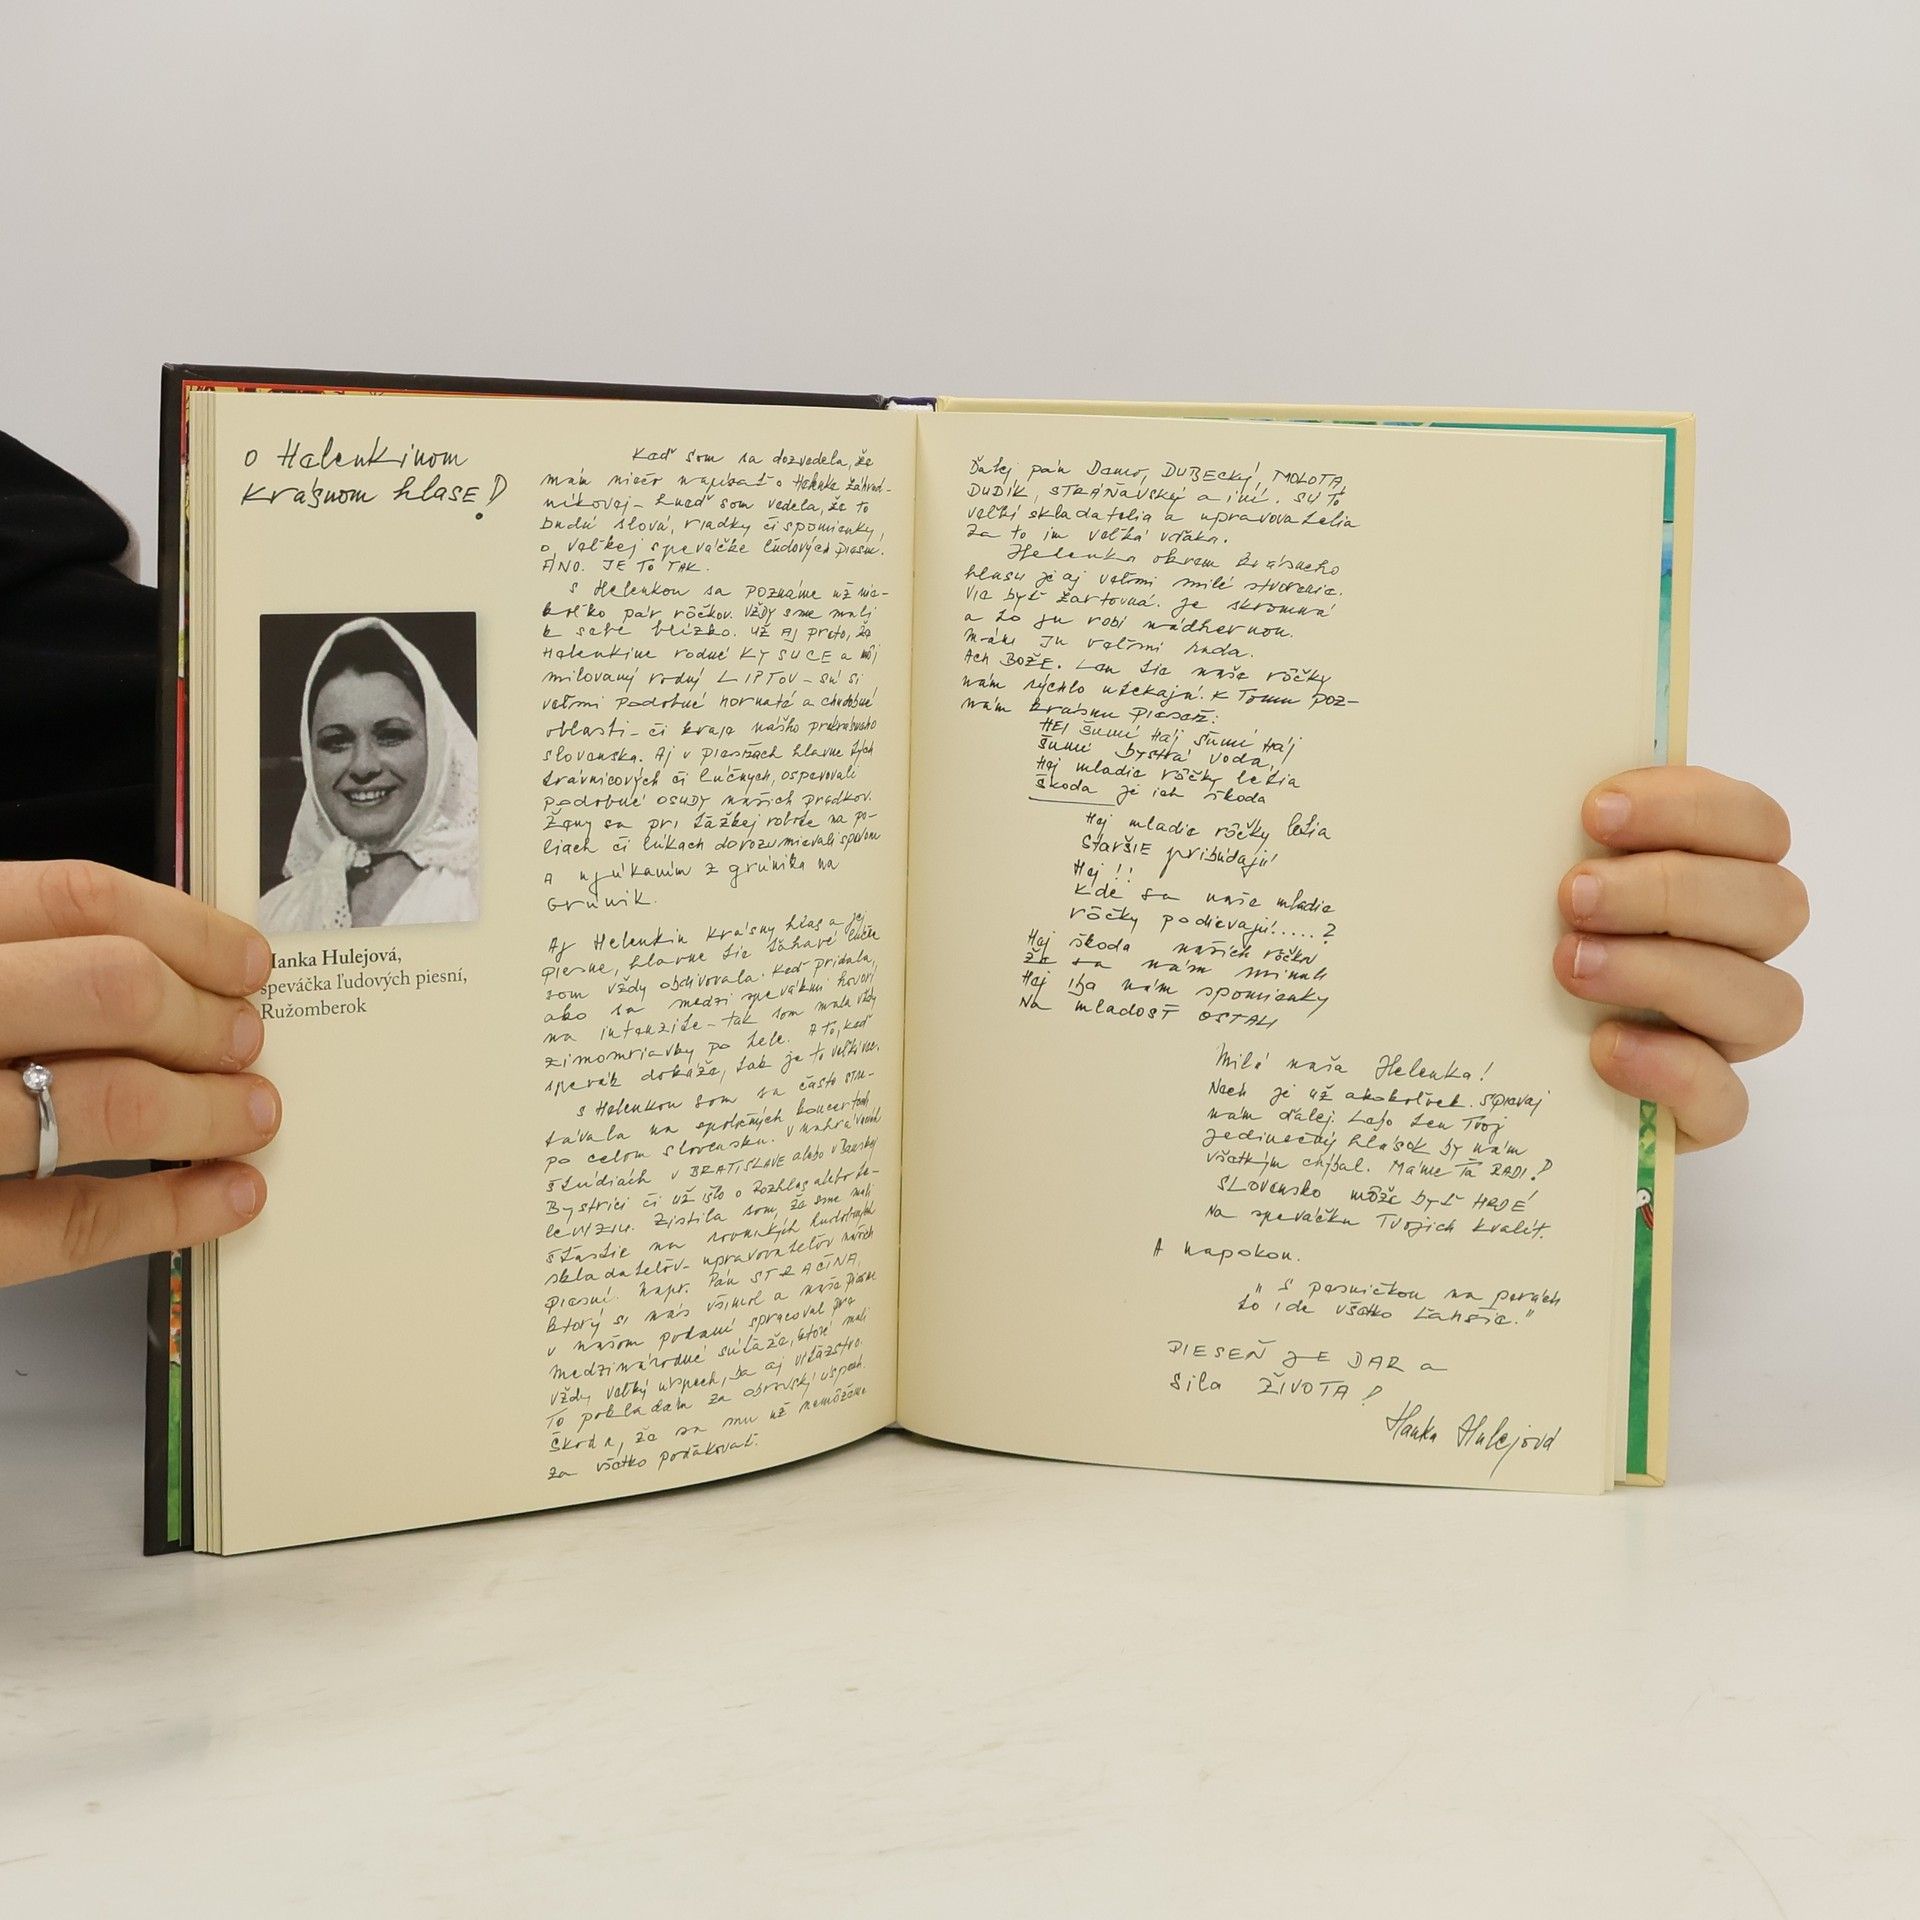 O Helenkinom
krásnom hlase!
Hanka Hulejová,
speváčka ľudových piesní,
Ružomberok
Keď som sa dozvedela, že
mám niečo napísať o Helenke Záhrad-
níkovej - hneď som vedela, že to
budú slová, riadky či spomienky,
o veľkej speváčke ľudových piesní.
ÁNO. JE TO TAK.
S Helenkou sa POZNÁME už nie-
koľko pár rôčkov. VŽDY sme mali
k sebe blízko. Už AJ preto, že
Helenkine rodné KYSUCE a môj
milovaný rodný LIPTOV - sú si
veľmi podobné hornaté a chudobné
oblasti - či kraje nášho prekrásneho
Slovenska. Aj v piesňach hlavne tých
trávnicových či lúčnych, ospevovali
podobné OSUDY našich predkov.
Ženy sa pri ťažkej robote na po-
liach či lúkach dorozumievali spevom
A ujúkaním z grúnika na
Grúnik.
Aj Helenkin krásny hlas a jej
piesne, hlavne tie ťahavé lúčne
som vždy obdivovala. Keď pridala,
ako sa medzi spevákmi hovorí
na intenzite - tak som mala vždy
zimomriavky po tele. A to, keď
spevák dokáže, tak je to veľká vec.
S Helenkou som sa často stre-
távala na spoločných koncertoch
po celom Slovensku. V nahrávacích
štúdiách v BRATISLAVE alebo v Banskej
Bystrici či už išlo o Rozhlas alebo te-
levíziu. Zistila som, že sme mali
šťastie na rovnakých hudobných
skladateľov - upravovateľov našich
piesní. Napr. Pán STRAČINA,
ktorý si nás všimol a naše piesne
v našom podaní spracoval pre
medzinárodné súťaže, ktoré mali
vždy veľký úspech, ba aj víťazstvo.
To pokladám za obrovský úspech.
Škoda, že sa mu už nemôžeme
za všetko poďakovať.
Ďalej pán Demo, DUBECKÝ, MOLOTA,
DUDÍK, STRÁŇAVSKÝ a iní. SÚ TO
veľkí skladatelia a upravovatelia
Za to im veľká vďaka.
Helenka okrem krásneho
hlasu je aj veľmi milé stvorenie.
Vie byť žartovná. Je skromná
a to ju robí nádhernou.
Mám JU veľmi rada.
Ach BOŽE. Len tie naše rôčky
nám rýchlo utekajú. K Tomu poz-
nám krásnu pieseň:
HEJ ŠUMÍ Háj šumí háj
šumí bystrá voda,
Hej mladie rôčky letia
Škoda je ich škoda
Hej mladie rôčky letia
StaršIE pribúdajú
Hej!!
Kde sa naše mladie
rôčky podievajú.....?
Hej škoda našich rôčkov
že sa nám minuli
Hej iba nám spomienky
Na mladosť OSTALI
Milá naša Helenka!
Nech je už akokoľvek. Spievaj
nám ďalej. Lebo len Tvoj
jedinečný hlások by nám
všetkým chýbal. Máme Ťa RADI!
SLOVENSKO môže byť HRDÉ
Na speváčku Tvojich kvalít.
A napokon.
"S pesničkou na perách
to ide všetko ľahšie."
PIESEŇ JE DAR a
Sila ŽIVOTA!
Hanka Hulejová